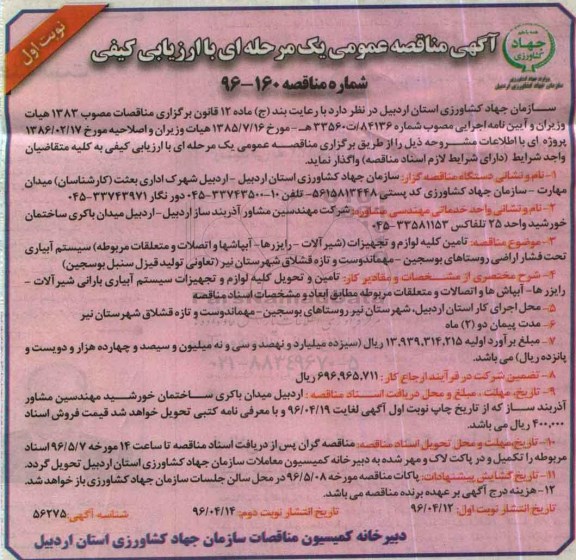 نوبت اول
جهاد کشاورزی
سازمان جهاد کشاورزی استان اردبیل
آگهی مناقصه عمومی یک مرحله ای با ارزیابی کیفی
شماره مناقصه ۱۶۰-۹۶
سازمان جهاد کشاورزی استان اردبیل در نظر دارد با رعایت بند (ج) ماده ۱۲ قانون برگزاری مناقصات مصوب ۱۳۸۳ هیات
وزیران و آیین نامه اجرایی مصوب شماره ۸۴۱۳۶/ت۳۳۵۶۰ هـ - مورخ ۱۳۸۵/۷/۱۶ هیات وزیران و اصلاحیه مورخ ۱۳۸۶/۰۲/۱۷
پروژه ای با اطلاعات مشروحه ذیل را از طریق برگزاری مناقصه عمومی یک مرحله ای با ارزیابی کیفی به کلیه متقاضیان
واجد شرایط (دارای شرایط لازم اسناد مناقصه) واگذار نماید.
۱- نام و نشانی دستگاه مناقصه گزار: سازمان جهاد کشاورزی استان اردبیل - اردبیل شهرک اداری بعثت (کارشناسان) میدان
مهارت - سازمان جهاد کشاورزی کد پستی ۵۶۱۵۸۱۳۴۴۸- تلفن ۱۰-۳۳۷۴۳۵۰۰-۰۴۵ دور نگار ۳۳۷۴۳۹۷۱-۰۴۵
۲- نام و نشانی واحد خدماتی مهندسی مشاوره: شرکت مهندسین مشاور آذربند ساز اردبیل - اردبیل میدان باکری ساختمان
خورشید واحد ۲۵ تلفاکس ۳۳۵۸۱۱۵۳-۰۴۵
۳- موضوع مناقصه: تامین کلیه لوازم و تجهیزات (شیرآلات - رایزرها- آبپاشها و اتصلات و متعلقات مربوطه) سیستم آبیاری
تحت فشار اراضی روستاهای بوسجین - مهماندوست و تازه قشلاق شهرستان نیر (تعاونی تولید قیزل سنبل بوسجین)
۴- شرح مختصری از مشخصات و مقادیر کار: تامین و تحویل کلیه لوازم و تجهیزات سیستم آبیاری بارانی شیرآلات -
رایزرها- آبپاش ها و اتصالات و متعلقات مربوطه مطابق ابعاد و مشخصات اسناد مناقصه
۵- محل اجرای کار استان اردبیل، شهرستان نیر روستاهای بوسجین - مهماندوست و تازه قشلاق شهرستان نیر
۶- مدت پیمان دو (۲) ماه
۷- مبلغ برآورد اولیه ۱۳,۹۳۹,۳۱۴,۲۱۵ ریال (سیزده میلیارد و نهصد و سی و نه میلیون و سیصد و چهارده هزار و دویست و
پانزده ریال) می باشد.
۸- تضمین شرکت در فرآیند ارجاع کار: ۶۹۶,۹۶۵,۷۱۱ ریال
۹- تاریخ، مهلت، مبلغ و محل دریافت اسناد مناقصه: اردبیل میدان باکری ساختمان خورشید مهندسین مشاور
آذربند ساز که از تاریخ چاپ نوبت اول آگهی لغایت ۹۶/۰۴/۱۹ و با معرفی نامه کتبی تحویل خواهد شد قیمت فروش اسناد
۴۰۰,۰۰۰ ریال می باشد.
۱۰- تاریخ، مهلت و محل تحویل اسناد مناقصه: مناقصه گران پس از دریافت اسناد مناقصه تا ساعت ۱۴ مورخه ۹۶/۵/۷ اسناد
مربوطه را تکمیل و در پاکت لاک و مهر شده به دبیرخانه کمیسیون معاملات سازمان جهاد کشاورزی استان اردبیل تحویل گردد.
۱۱- تاریخ گشایش پیشنهادات: پاکات مناقصه مورخه ۹۶/۵/۰۸ در محل سالن جلسات سازمان جهاد کشاورزی باز خواهد شد.
۱۲- هزینه درج آگهی بر عهده برنده مناقصه می باشد.
تاریخ انتشار نوبت اول: ۹۶/۰۴/۱۲ تاریخ انتشار نوبت دوم: ۹۶/۰۴/۱۴ شناسه آگهی: ۵۶۲۷۵
دبیرخانه کمیسیون مناقصات سازمان جهاد کشاورزی استان اردبیل
۰۲۱-۸۸۳۴۹۶۷۰-۵